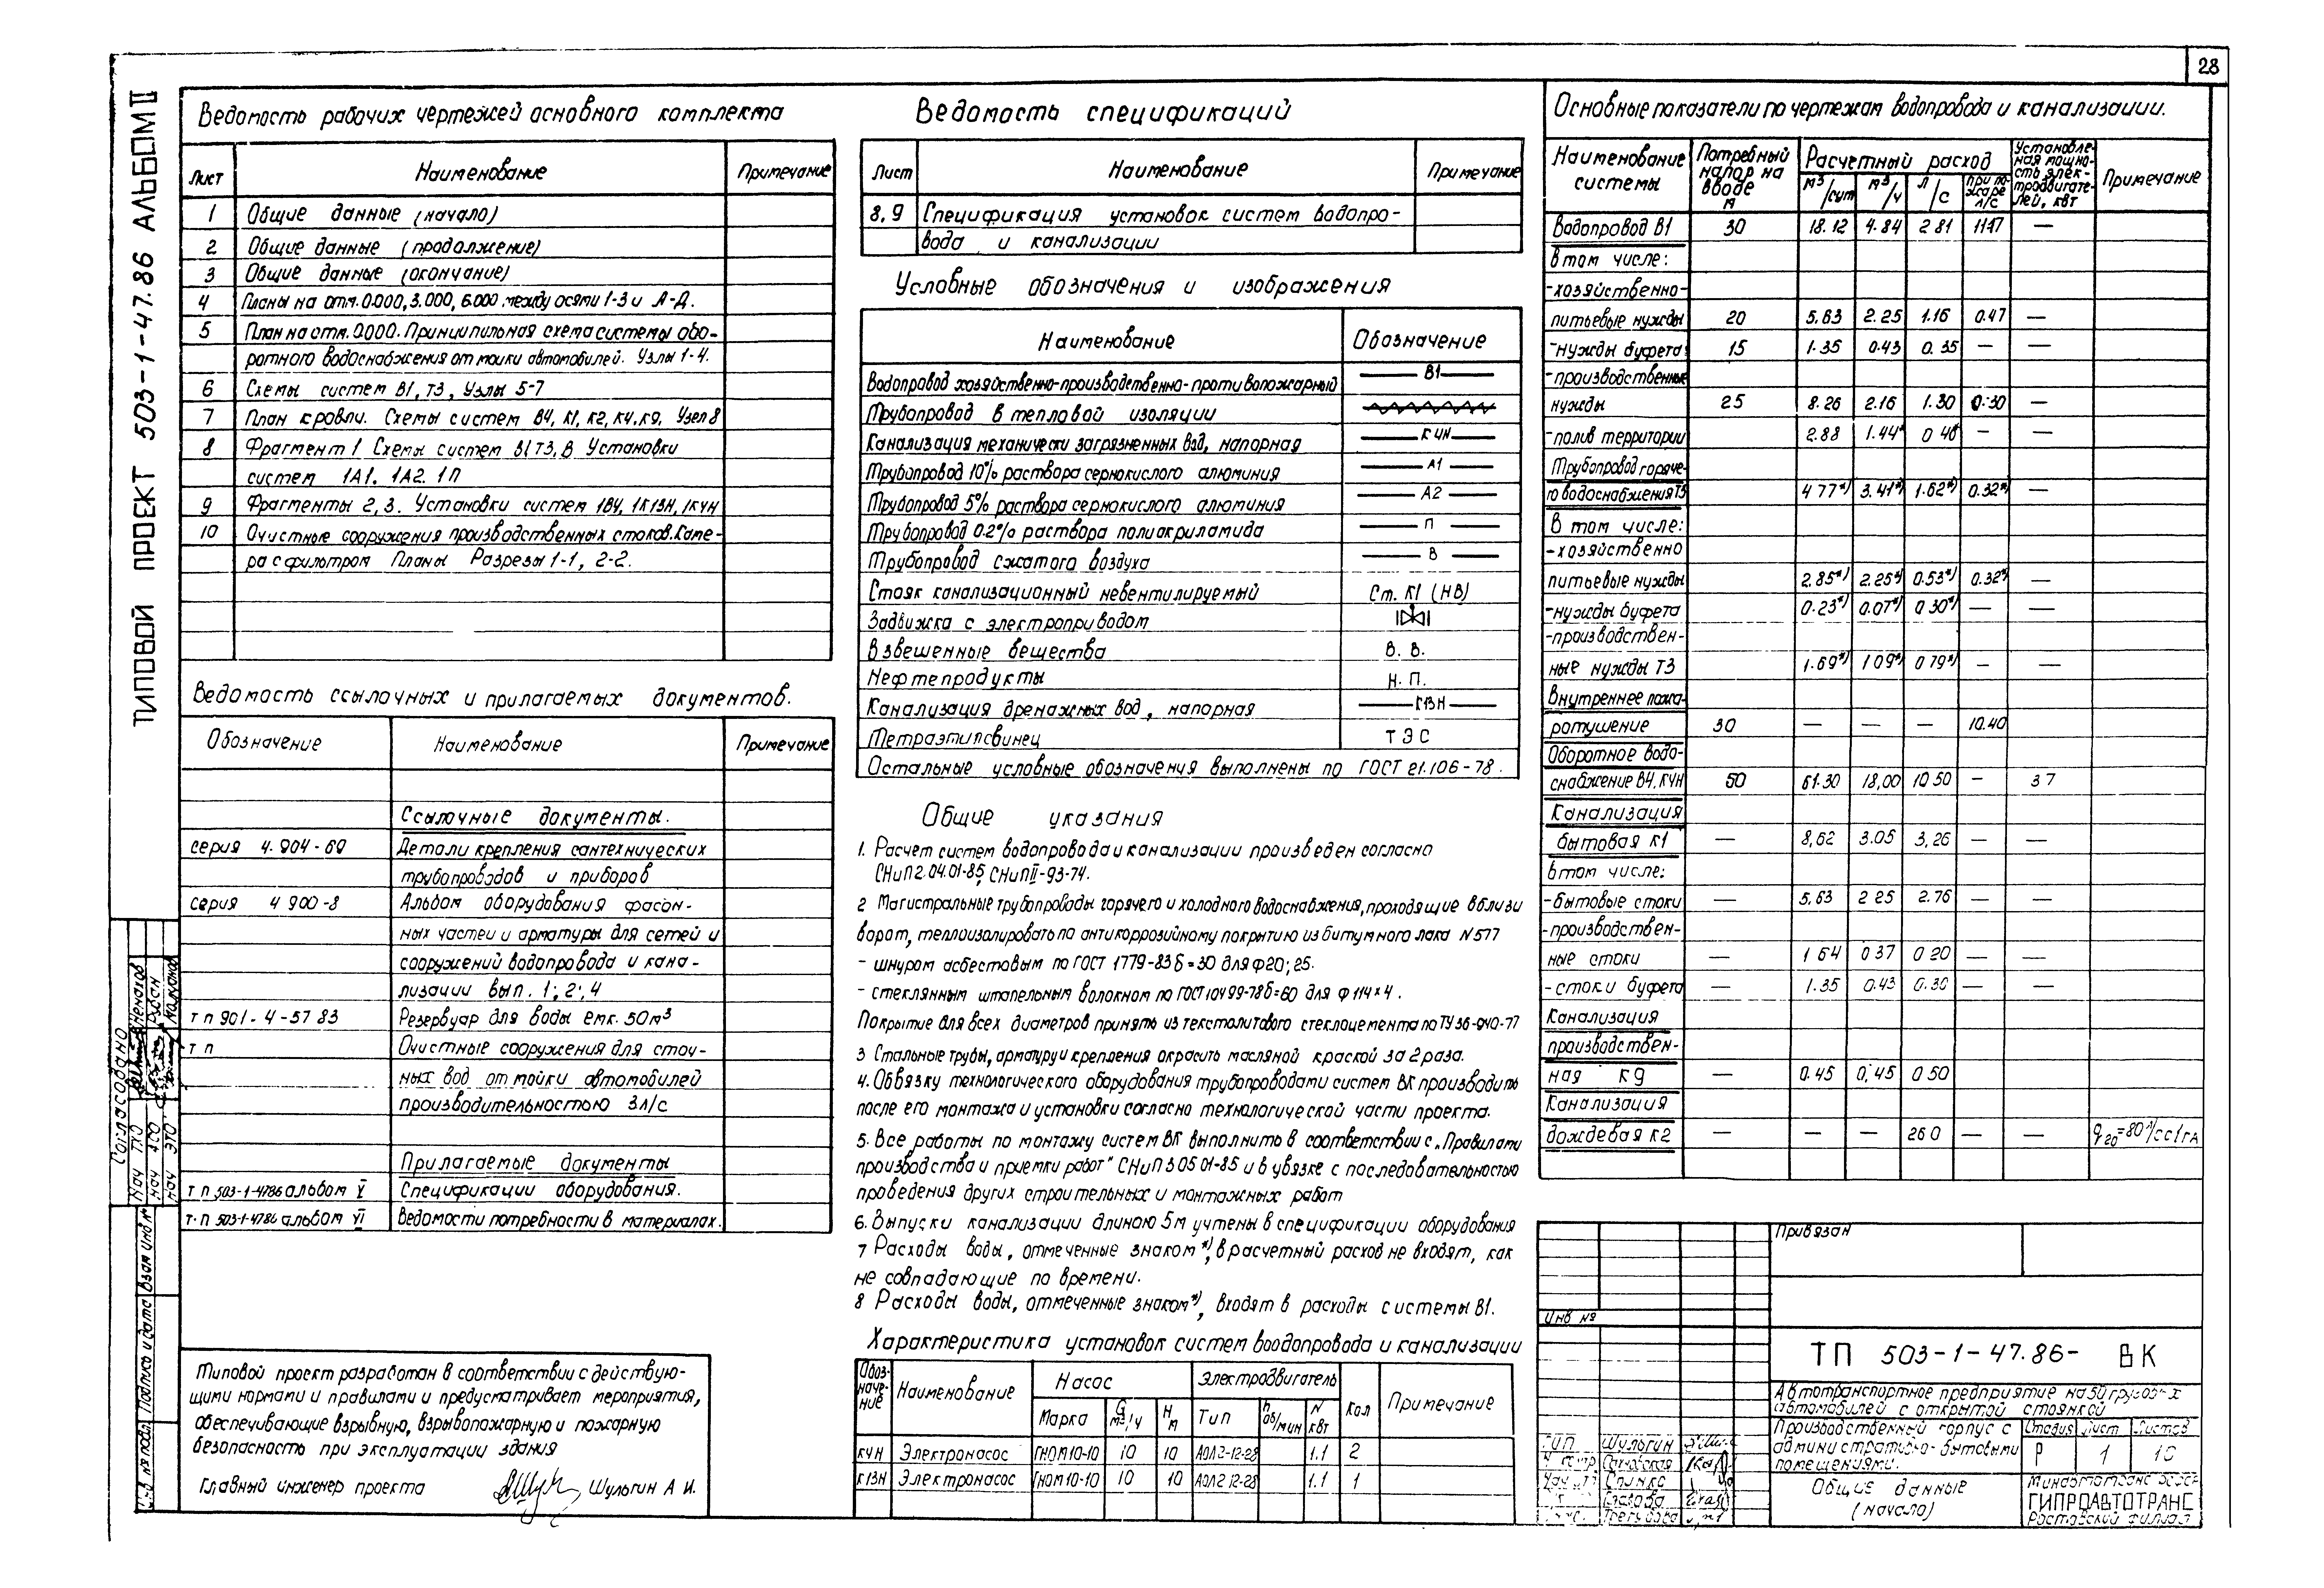 28
ТИПОВОЙ ПРОЕКТ 503-1-47.86 АЛЬБОМ II
Ведомость рабочих чертежей основного комплекта
Лист Наименование Примечание
1 Общие данные (начало)
2 Общие данные (продолжение)
3 Общие данные (окончание)
4 Планы на отм. 0.000, 3.000, 6.000 между осями 1-3 и А-Д.
5 План на отм. 0.000. Принципильная схема системы обо-
ротного водоснабжения от мойки автомобилей. Узлы 1-4.
6 Схемы систем В1, Т3, Узлы 5-7
7 План кровли. Схемы систем В4, К1, К2, К4, К9, Узел 8
8 Фрагмент 1 Схемы систем В1 Т3, В Установки
систем 1А1. 1А2. 1П
9 Фрагменты 2, 3. Установки систем 1В4, 1К13Н, 1К4Н
10 Очистные сооружения производственных стоков. Каме-
ра с фильтром Планы Разрезы 1-1, 2-2.
Ведомость ссылочных и прилагаемых документов.
Обозначение Наименование Примечание
Ссылочные документы.
серия 4.904-69 Детали крепления сантехнических
трубопроводов и приборов
серия 4 900-8 Альбом оборудования фасон-
ных частей и арматуры для сетей и
сооружений водопровода и кана-
лизации вып. 1; 2; 4
т п 901-4-57 83 Резервуар для воды емк. 50м³
т п Очистные сооружения для сточ-
ных вод от мойки автомобилей
производительностью 3л/с
Прилагаемые документы
т п 503-1-4786 альбом V Спецификации оборудования.
т. п 503-1-4786 альбом VI Ведомости потребности в материалах.
Типовой проект разработан в соответствии с действую-
щими нормами и правилами и предусматривает мероприятия,
обеспечивающие взрывную, взрывопожарную и пожарную
безопасность при эксплуатации здания
Главный инженер проекта Шульгин А И.
Ведомость спецификаций
Лист Наименование Примечание
8, 9 Спецификация установок систем водопро-
вода и канализации
Условные обозначения и изображения
Наименование Обозначение
Водопровод хозяйственно-производственно-противопожарный В1
Трубопровод в тепловой изоляции
Канализация механически загрязненных вод, напорная К4Н
Трубопровод 10% раствора сернокислого алюминия А1
Трубопровод 5% раствора сернокислого алюминия А2
Трубопровод 0.2% раствора полиакриламида П
Трубопровод сжатого воздуха В
Стояк канализационный невентилируемый Ст. К1 (НВ)
Задвижка с электроприводом
Взвешенные вещества В. В.
Нефтепродукты Н. П.
Канализация дренажных вод, напорная К13Н
Тетраэтилсвинец ТЭС
Остальные условные обозначения выполнены по ГОСТ 21.106-78.
Общие указания
1. Расчет систем водопровода и канализации произведен согласно
СНиП 2.04.01-85, СНиП II-93-74.
2 Магистральные трубопроводы горячего и холодного водоснабжения, проходящие вблизи
ворот, теплоизолировать по антикоррозийному покрытию из битумного лака N577
- шнуром асбестовым по ГОСТ 1779-83 δ=30 для φ20; 25.
- стеклянным штапельным волокном по ГОСТ 10499-78 δ=60 для φ 114×4.
Покрытие для всех диаметров принять из текстолитового стеклоцемента по ТУ 36-940-77
3 Стальные трубы, арматуру и крепления окрасить масляной краской за 2 раза.
4. Обвязку технологического оборудования трубопроводами систем ВК производить
после его монтажа и установки согласно технологической части проекта.
5. Все работы по монтажу систем ВК выполнить в соответствии с „Правилами
производства и приемки работ" СНиП 3 05 01-85 и в увязке с последовательностью
проведения других строительных и монтажных работ
6. Выпуски канализации длиною 5м учтены в спецификации оборудования
7 Расходы воды, отмеченные знаком *), в расчетный расход не входят, как
не совпадающие по времени.
8 Расходы воды, отмеченные знаком *), входят в расходы системы В1.
Характеристика установок систем воодопровода и канализации
Обоз-
наче-
ние Наименование Насос Электродвигатель Кол Примечание
Марка G м³/ч Н м Тип n об/мин N квт
К4Н Электронасос ГНОМ 10-10 10 10 АОЛ2-12-28 1.1 2
К13Н Электронасос ГНОМ 10-10 10 10 АОЛ2 12-28 1.1 1
Основные показатели по чертежам водопровода и канализации.
Наименование системы Потребный напор на вводе м Расчетный расход Установле-
ная мощно-
сть элек-
тродвигате-
лей, квт Примечание
м³/сут м³/ч л/с при по-
жаре л/с
Водопровод В1 30 18.12 4.84 2 81 11.47 —
В том числе:
-хозяйственно-
питьевые нужды 20 5.63 2.25 1.16 0.47 —
-нужды буфета 15 1.35 0.43 0.35 — —
-производственные
нужды 25 8.26 2.16 1.30 0.30 —
-полив территории 2.88 1.44* 0 40* — —
Трубопровод горяче-
го водоснабжения Т3 4 77*) 3.41*) 1.62*) 0.32*) —
В том числе:
-хозяйственно
питьевые нужды 2.85*) 2.25*) 0.53*) 0.32*) —
-нужды буфета 0.23*) 0.07*) 0 30*) — —
-производствен-
ные нужды Т3 1.69*) 1 09*) 0 79*) — —
Внутреннее пожа-
ротушение 30 — — — 10.40
Оборотное водо-
снабжение В4, К4Н 50 61.30 18,00 10 50 — 3 7
Канализация
бытовая К1 — 8,62 3.05 3,26 — —
в том числе:
-бытовые стоки — 5,63 2 25 2.76 — —
-производствен-
ные стоки — 1 64 0 37 0 20 — —
-стоки буфета — 1.35 0.43 0.30 — —
Канализация
производствен-
ная К9 — 0.45 0,45 0 50
Канализация
дождевая К2 — — — 26 0 — — q20=80 л/сс1га
Привязан
Инв №
ТП 503-1-47.86- ВК
Автотранспортное предприятие на 50 грузовых
автомобилей с открытой стоянкой
Производственный корпус с
административно-бытовыми
помещениями.
Стадия Лист Листов
Р 1 10
Общие данные
(начало)
Минавтотранс РСФСР
ГИПРОАВТОТРАНС
Ростовский филиал
ГИП Шульгин
Согласовано
Нач ТКО
Нач АСО
Нач ЭТО
Инв № подл. Подпись и дата Взам инв №